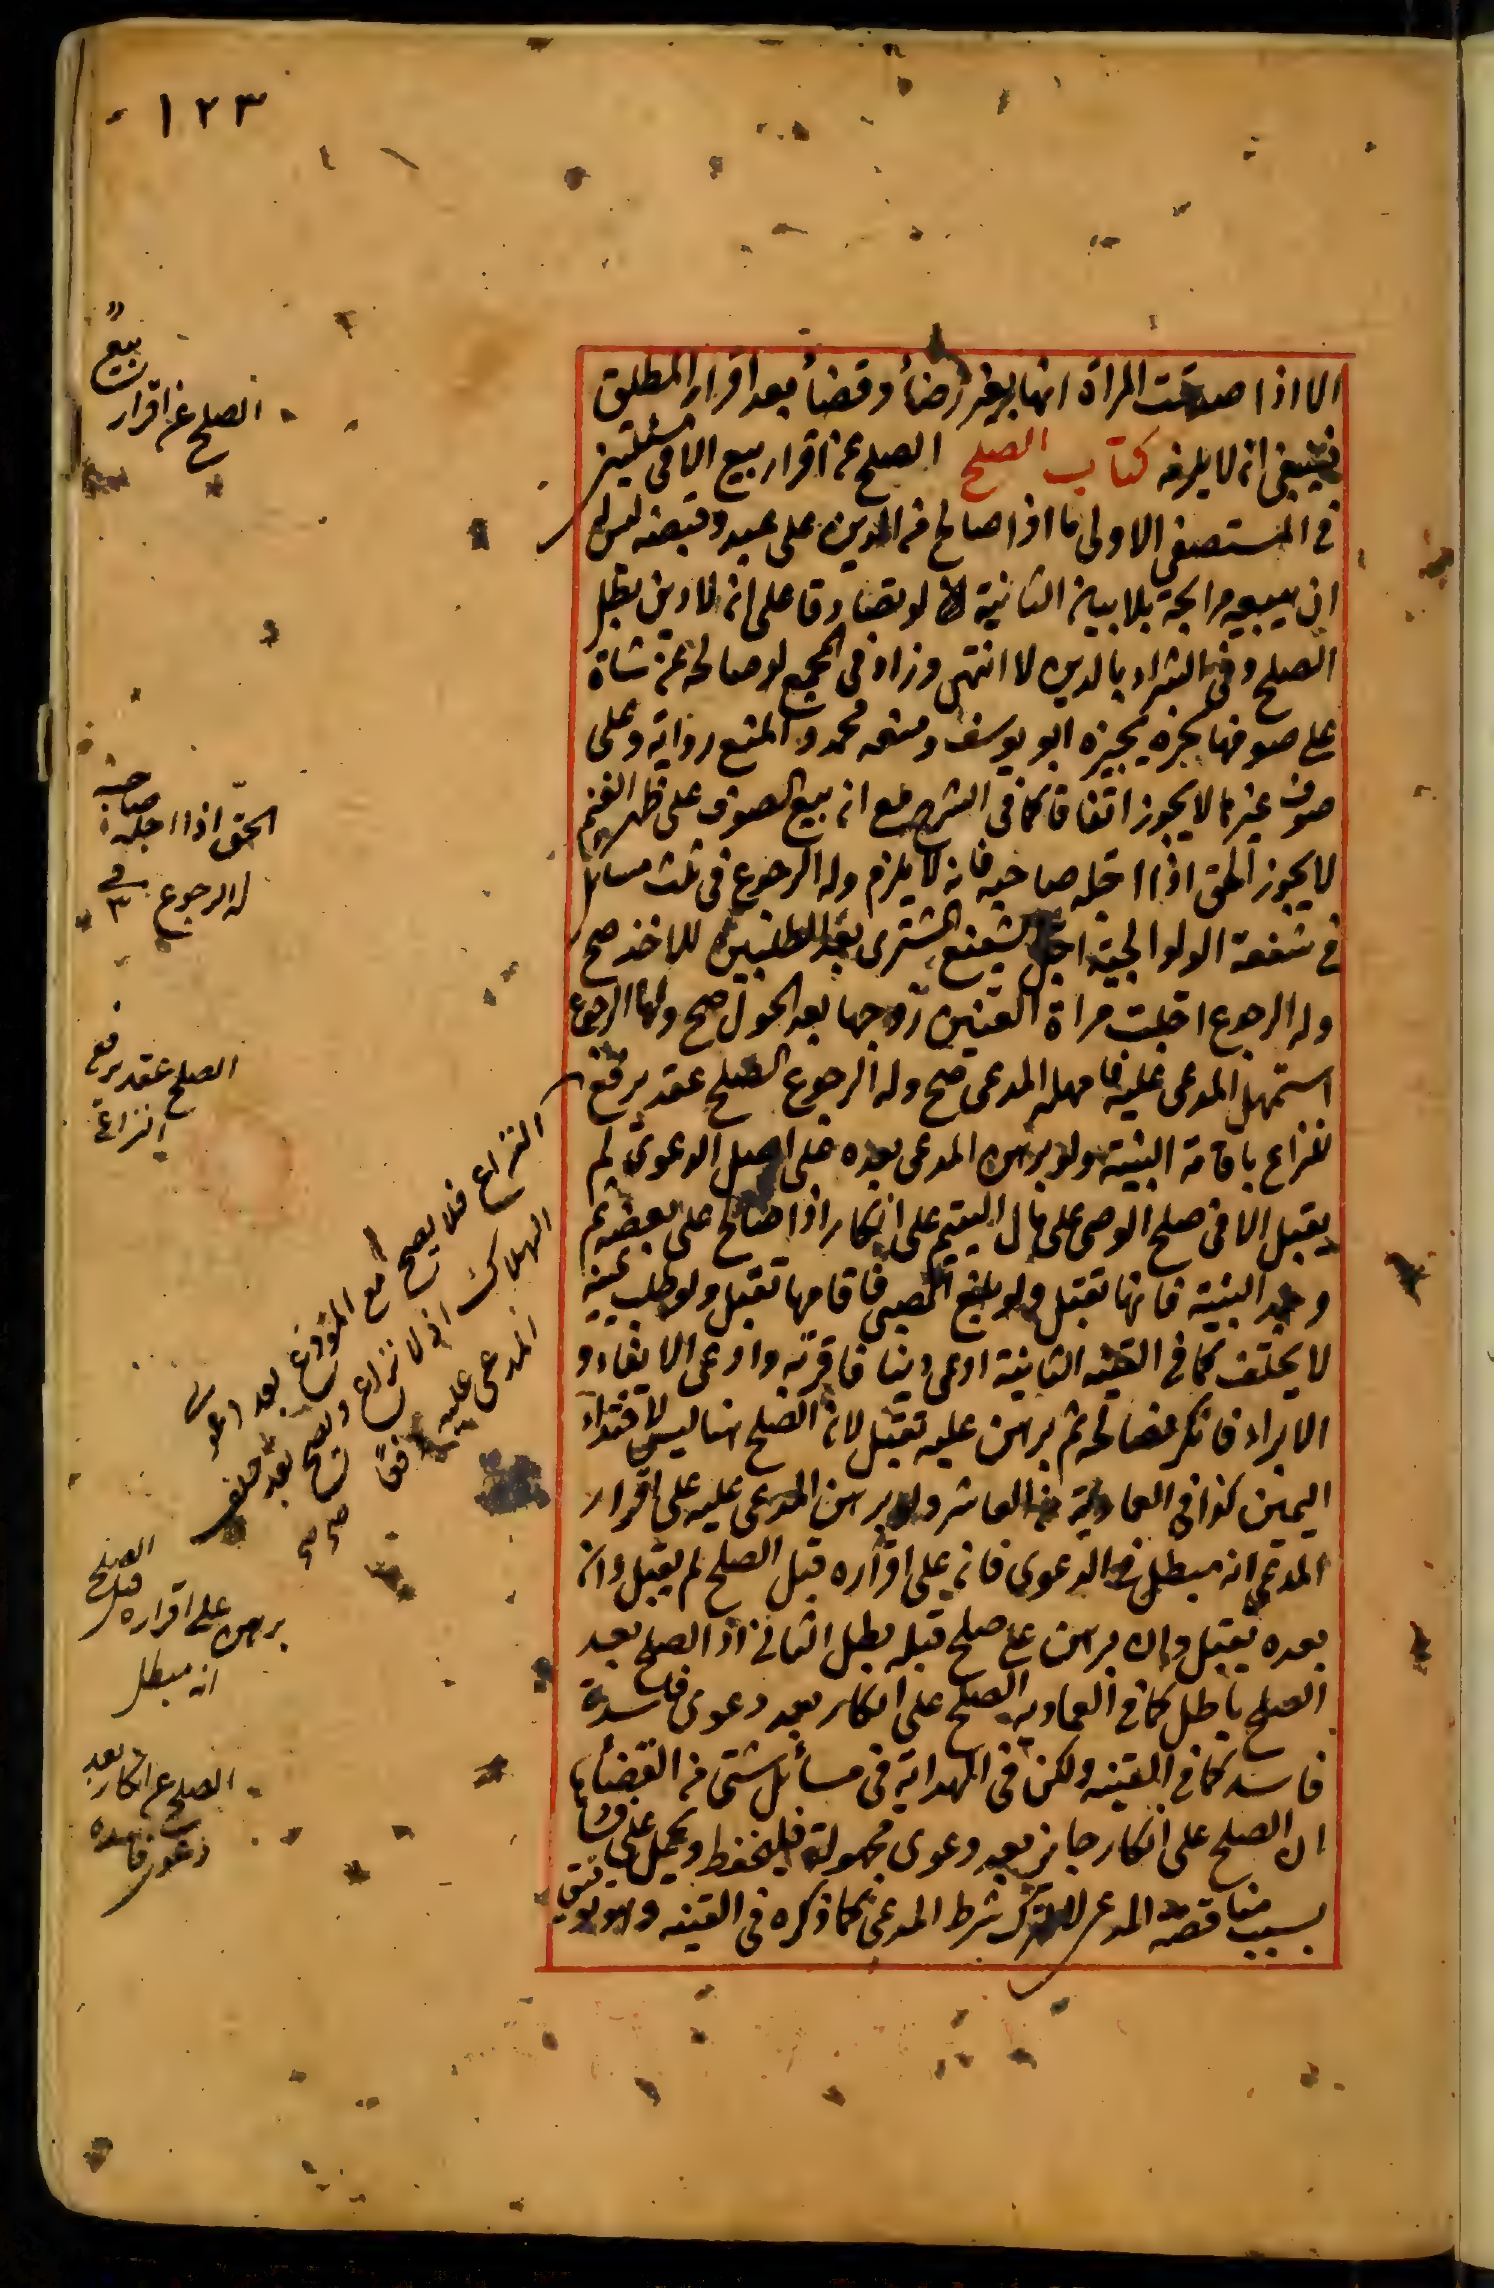 ١٢٣
الا اذا صدقت المراة انها بغير رضأ وقضأ بعد اقرار المطلق
فينبغي انه لا يلزمه كتاب الصلح الصلح عن اقرار بيع الا في مسئلتين
في المستصفي الاولى ما اذا صالح من الدين على عبد وقبضه ليس له
ان يبيعه مرابحة بلا بيان الثانية لو تصادقا على انه لا دين بطل
الصلح وفي الشراء بالدين لا انتهى وزاد في المجمع لو صالحه عن شاة
على صوفها بجزه يجيزه ابو يوسف ومنعه محمد والمنع رواية وعلى
صوف غيرها لا يجوز اتفاقا كما في الشرح مع انه بيع الصوف على ظهر الغنم
لا يجوز الحق اذا اجله صاحبه فانه لا يلزم وله الرجوع في ثلث مسائل
في شفعة الولوالجية اجل الشفيع المشترى بعد الطلبين للاخذ صح
وله الرجوع اجلت مراة العنين زوجها بعد الحول صح ولها الرجوع
استمهل المدعى عليه فامهله المدعى صح وله الرجوع الصلح عقد يرفع
النزاع باقامة البينة ولو برهن المدعى بعده على اصل الدعوى لم
يقبل الا في صلح الوصى على مال اليتيم على انكار اذا صالح على بعضه ثم
وجد البينة فانها تقبل ولو بلغ الصبى فاقامها تقبل ولو طلب يمينه
لا يحلف كما في القنيه الثانية ادعى دينا فاقر به وادعى الايفاء و
الابراء فانكر فصالحه ثم برهن عليه تقبل لان الصلح هنا ليس لافتداء
اليمين كذا في العمادية من العاشر ولو برهن المدعى عليه على اقرار
المدعى انه مبطل في الدعوى فان على اقراره قبل الصلح لم يقبل وان
بعده يقبل وان برهن على صلح قبله بطل الثاني اذ الصلح بعد
الصلح باطل كما في العماديه الصلح على انكار بعد دعوى فاسدة
فاسد كما في القنيه ولكن في الهداية في مسائل شتى من القضأ
ان الصلح على انكار جايز بعد دعوى مجهولة فليحفظ ويحمل على فسادها
بسبب مناقضة المدعى لا لترك شرط المدعى كما ذكره في القنيه وهو توفيق
بيع
الصلح عن اقرار
صاحبه
الحق اذا اجله
له الرجوع في ٣
الصلح عقد يرفع
النزاع
النزاع فلا يصح مع المودع بعد دعوى
الهلاك اذ لا نزاع ويصح بعد حلف
المدعى عليه دفعًا
صح صح
الصلح
برهن على اقراره قبل
انه مبطل
الصلح عن انكار بعد
دعوى فاسده